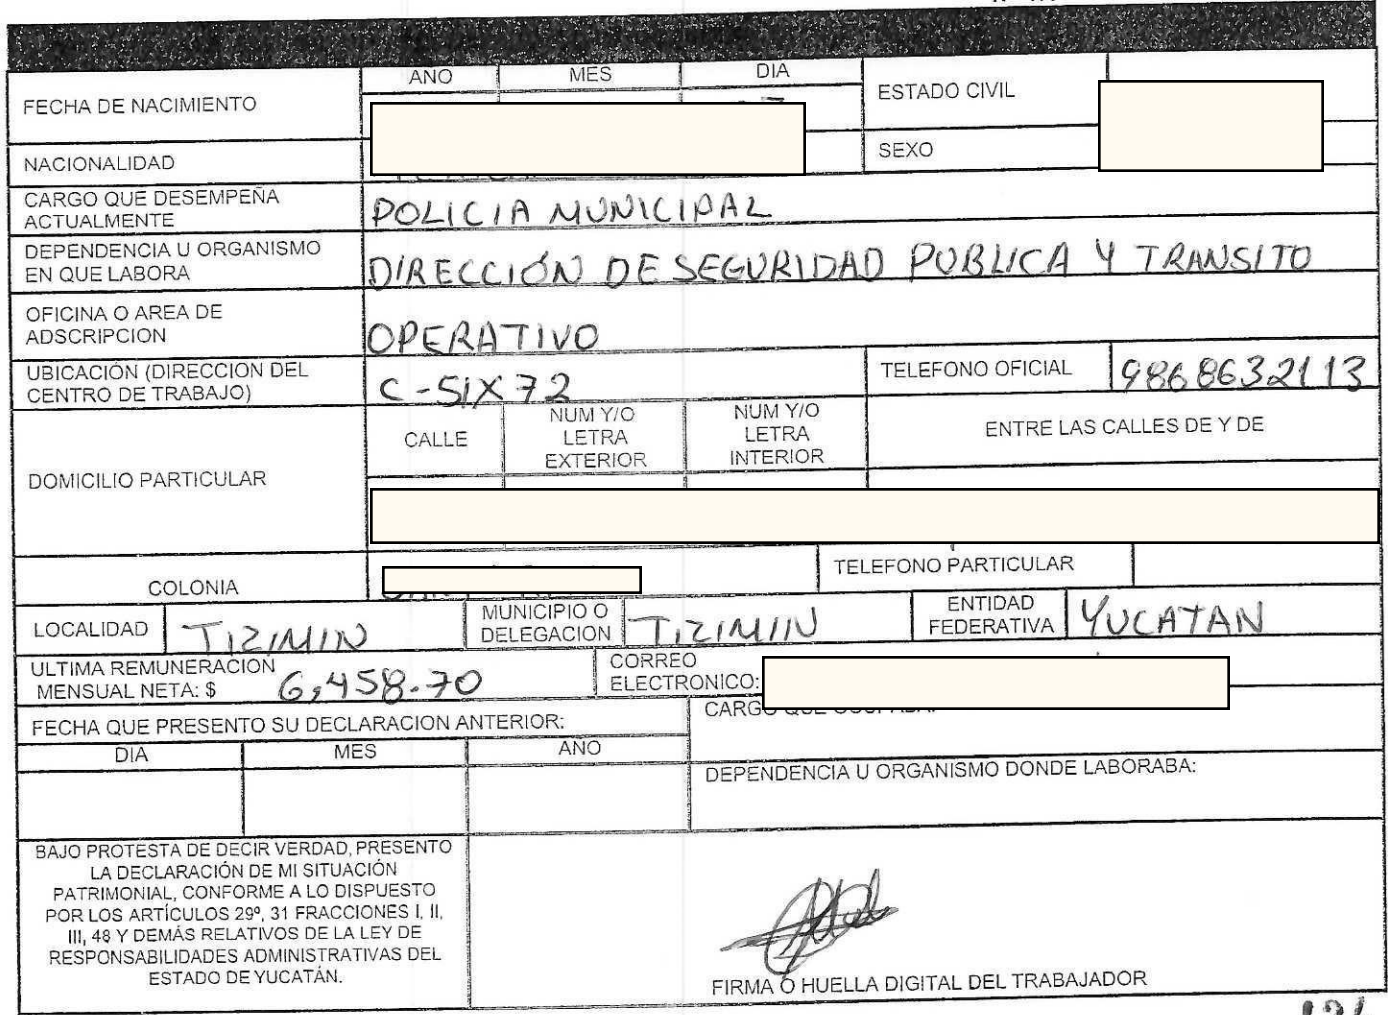 AÑO MES DIA
FECHA DE NACIMIENTO
ESTADO CIVIL
NACIONALIDAD
SEXO
CARGO QUE DESEMPEÑA
ACTUALMENTE
POLICIA MUNICIPAL
DEPENDENCIA U ORGANISMO
EN QUE LABORA
DIRECCIÓN DE SEGURIDAD PUBLICA Y TRANSITO
OFICINA O AREA DE
ADSCRIPCION
OPERATIVO
UBICACIÓN (DIRECCION DEL
CENTRO DE TRABAJO)
C-51X72
TELEFONO OFICIAL
9868632113
DOMICILIO PARTICULAR
CALLE
NUM Y/O
LETRA
EXTERIOR
NUM Y/O
LETRA
INTERIOR
ENTRE LAS CALLES DE Y DE
COLONIA
TELEFONO PARTICULAR
LOCALIDAD
TIZIMIN
MUNICIPIO O
DELEGACION
TIZIMIN
ENTIDAD
FEDERATIVA
YUCATAN
ULTIMA REMUNERACION
MENSUAL NETA: $
6,458.70
CORREO
ELECTRONICO:
FECHA QUE PRESENTO SU DECLARACION ANTERIOR:
DIA MES AÑO
DEPENDENCIA U ORGANISMO DONDE LABORABA:
BAJO PROTESTA DE DECIR VERDAD, PRESENTO
LA DECLARACIÓN DE MI SITUACIÓN
PATRIMONIAL, CONFORME A LO DISPUESTO
POR LOS ARTÍCULOS 29º, 31 FRACCIONES I, II,
III, 48 Y DEMÁS RELATIVOS DE LA LEY DE
RESPONSABILIDADES ADMINISTRATIVAS DEL
ESTADO DE YUCATÁN.
FIRMA O HUELLA DIGITAL DEL TRABAJADOR